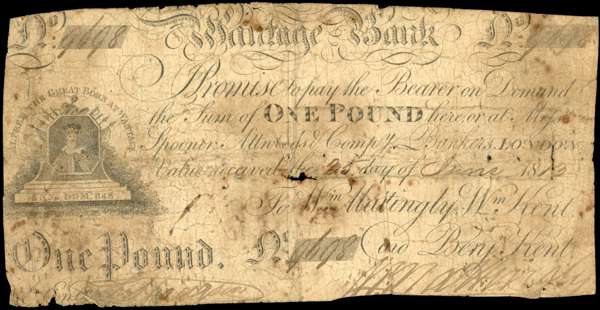 No. 9698 Wantage Bank No. 9698
I Promise to pay the Bearer on Demand
the Sum of ONE POUND here, or at Mess.
Spooner, Attwoods & Compy. Bankers, LONDON
Value received the day of June 1813
To Wm. Hattingly, Wm. Kent.
One Pound. No. 9698 and Benj. Kent.
ALFRED THE GREAT BORN AT WANTAGE
ANN. DOM. 849
Ent